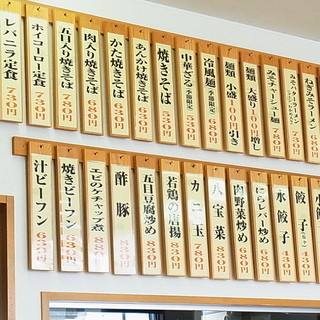 ねぎみそラーメン 880円
みそバターラーメン
みそチャーシュー麺 780円
麺類 大盛り 100円増し
麺類 小盛 100円引き
冷風麺(季節限定) 680円
中華ざる(季節限定) 530円
焼きそば 530円
あんかけ焼きそば 630円
かた焼きそば 630円
肉入り焼きそば 680円
五目入り焼きそば 780円
ホイコーロー定食 730円
レバニラ定食 730円
水餃子 430円
にらレバー炒め 680円
肉野菜炒め 680円
八宝菜 830円
カニ玉 780円
若鶏の唐揚 830円
五目豆腐炒め 830円
酢豚 830円
エビのケチャップ煮 880円
焼きビーフン 630円
汁ビーフン 630円